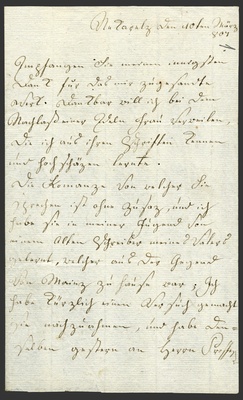 den 10ten März
801
Empfangen Sie meinen innigsten
Dank für das mir zugesandte
Werk. Dankbar will ich bei dem
Nachlaß einer Edeln Frau verweilen,
die ich aus ihren Schriften kennen
und hochschäzen lernte.
Die Romanze von welcher Sie
sprechen ist ohne Zusaz, und ich
habe sie in meiner Jugend von
einem Alten Schreiber meines Vaters
gelernt, welcher aus der Gegend
von Mainz zu Hause war; Ich
habe kürzlich einen Versuch gemacht
sie nachzuahmen, und habe den-
selben gestern an Herrn